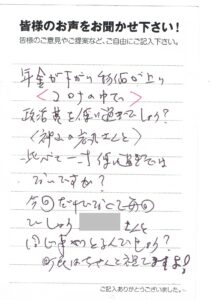 皆様のお声をお聞かせ下さい！
皆様のご意見やご提案など、ご自由にご記入下さい。
年金が下がり物価が上り
＜コロナの中で＞
政治費を使い過ぎでしょう？
比べて一寸使い過ぎでは
ないですか？
今回だけひどくて毎回
でしょう さんと
同じ事やりょんでしょう？
町民はちゃんと視てますよ！
ご記入ありがとうございました。